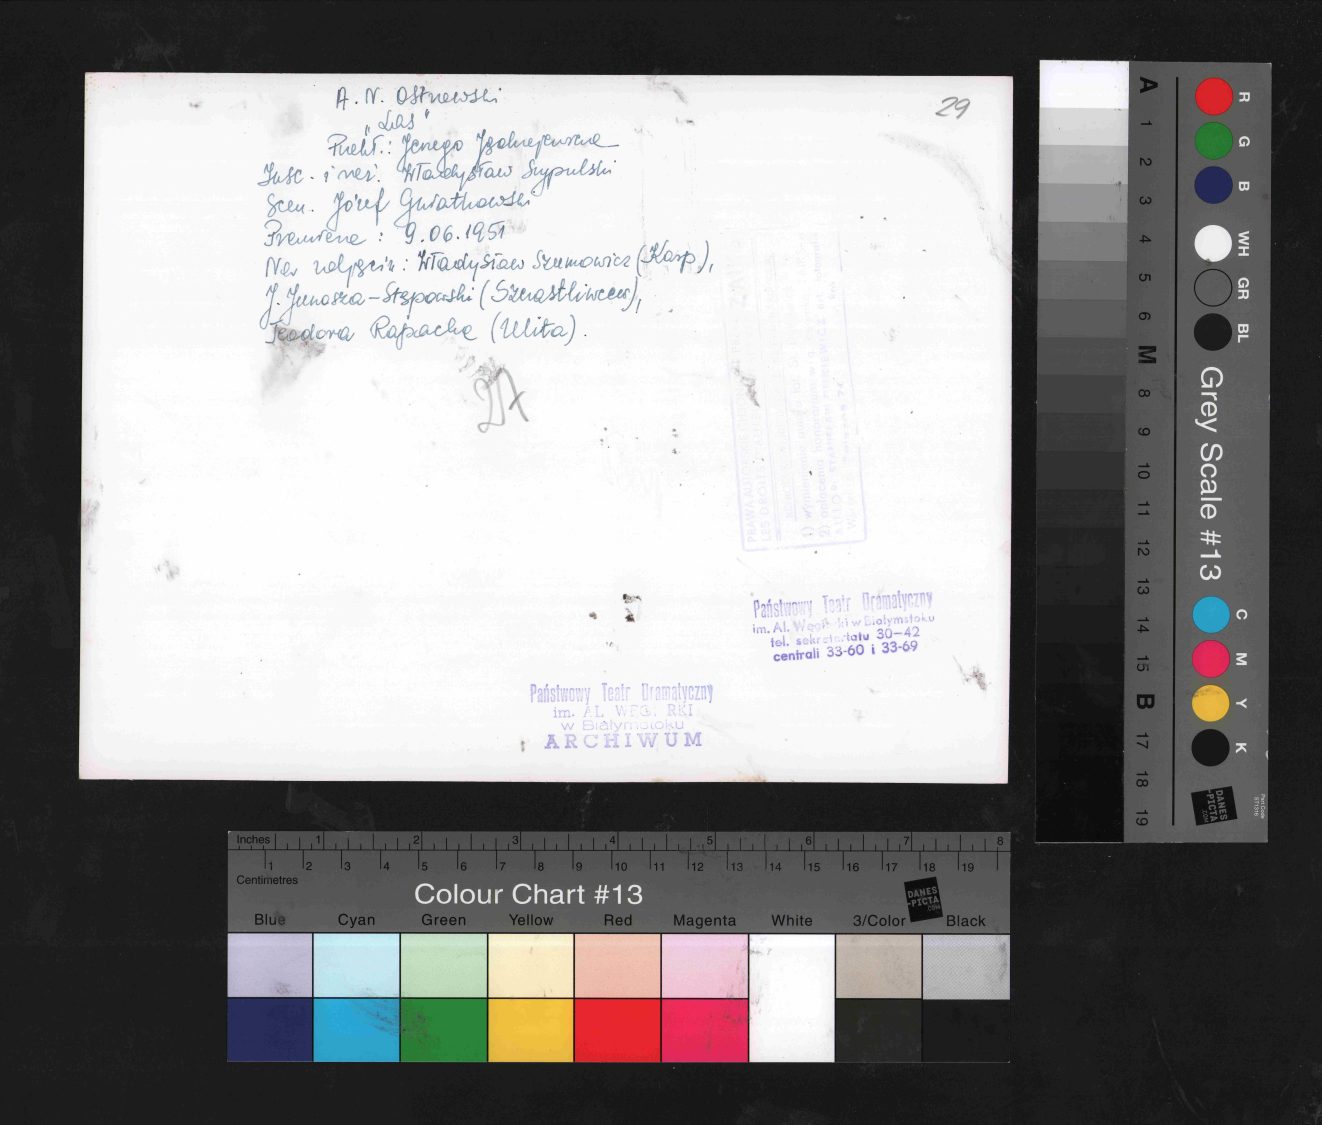 A. N. Ostrowski
„Las"
Przekł.: Jerzego Jędrzejewicza
Insc. i reż. Władysław Szypulski
Scen. Józef Gwiatkowski
Premiera : 9.06.1951
Na zdjęciu: Władysław Szumowicz (Karp),
J. Junosza-Stępowski (Szczastliwcew),
Teodora Rapacka (Ulita).
29
27
PRAWA AUTORSKIE
LES DROITS
Państwowy Teatr Dramatyczny
im. Al. Węgierki w Białymstoku
tel. sekretariatu 30-42
centrali 33-60 i 33-69
Państwowy Teatr Dramatyczny
im. AL. WĘGIERKI
w Białymstoku
ARCHIWUM
A
1
2
3
4
5
6
M
8
9
10
11
12
13
14
15
B
17
18
19
R
G
B
WH
GR
BL
Grey Scale #13
C
M
Y
K
DANES
-PICTA
.COM
Part Code
ST1316
Inches 1 2 3 4 5 6 7 8
1 2 3 4 5 6 7 8 9 10 11 12 13 14 15 16 17 18 19
Centimetres
Colour Chart #13
DANES
-PICTA
.COM
Blue Cyan Green Yellow Red Magenta White 3/Color Black